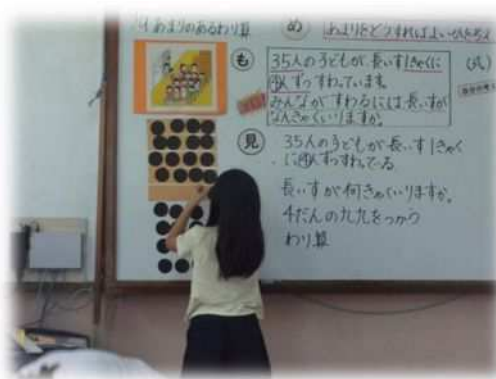 14 あまりのあるわり算
め あまりをどうすればよいか考え
も 35人の子どもが、長いす1きゃくに
4人ずつすわっています。
みんながすわるには長いすが
なんきゃくいりますか。
(式)
自分の考え
見 35人の子どもが長いす1きゃく
に4人ずつすわっている
長いすが何きゃくいりますか。
4だんの九九をつかう
わり算